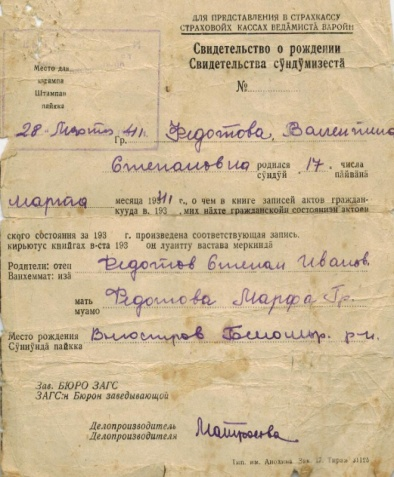 ДЛЯ ПРЕДСТАВЛЕНИЯ В СТРАХКАССУ
СТРАХОВОЙХ КАССАХ ВЕДӒМИСТӒ ВАРОЙН
Свидетельство о рождении
Свидетельства сӱндӱмизестӓ
Место для
штампа
Штампан
пайкка
№
28-Марта 41г.
Гр. Федотова, Валентина
Степановна родился 17. числа
сӱндӱй пӓйвӓнӓ
марта месяца 1941 г., о чем в книге записей актов граждан-
кууда в. 193 , мих нӓхте гражданскойн состоянизн актовн
ского состояния за 193 г. произведена соответствующая запись.
кирьютус книйгах в-ста 193 он луантту вастава меркиндӓ
Родители: отец Федотов Степан Иванов.
Ванхеммат: изӓ
мать Федотова Марфа Гр.
муамо
Место рождения
Сӱнӱндӓ пайкка
р-н.
Зав. БЮРО ЗАГС
ЗАГС:н Бюрон заведывающой
Делопроизводитель
Делопроизводителя
Тип. им. Анохина